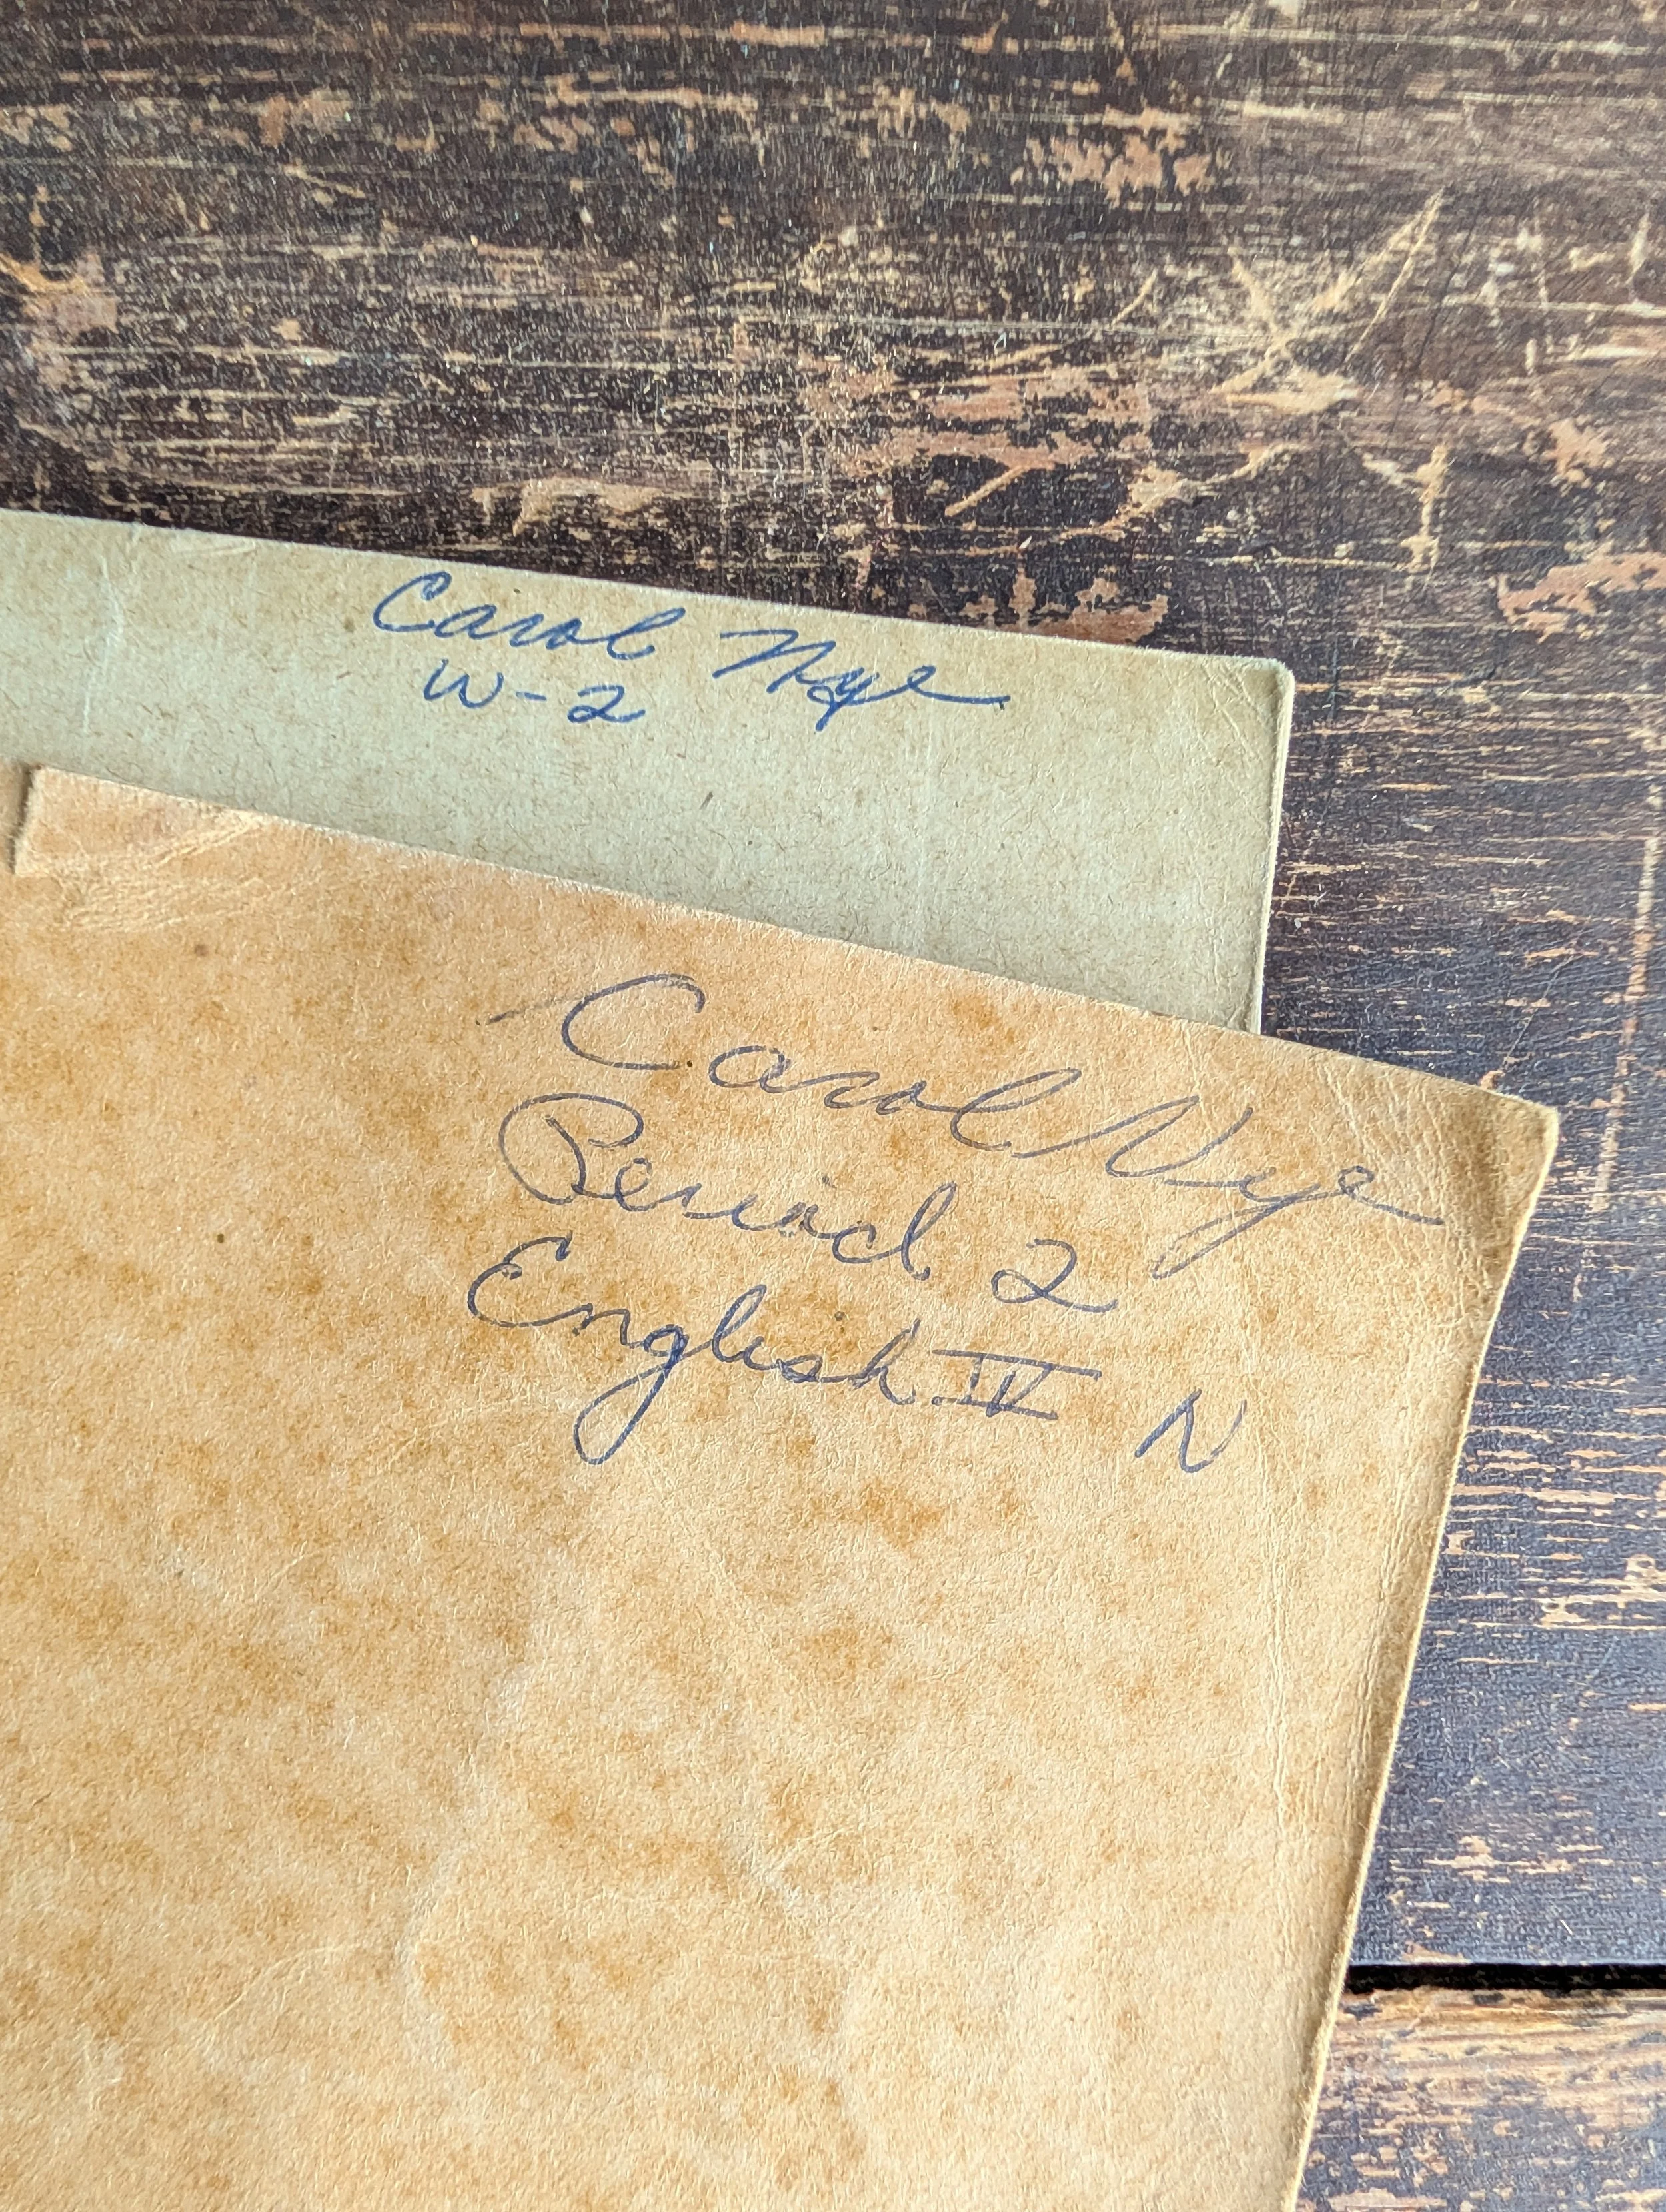 Carol Nye
W-2
Carol Nye
Period 2
English IV N